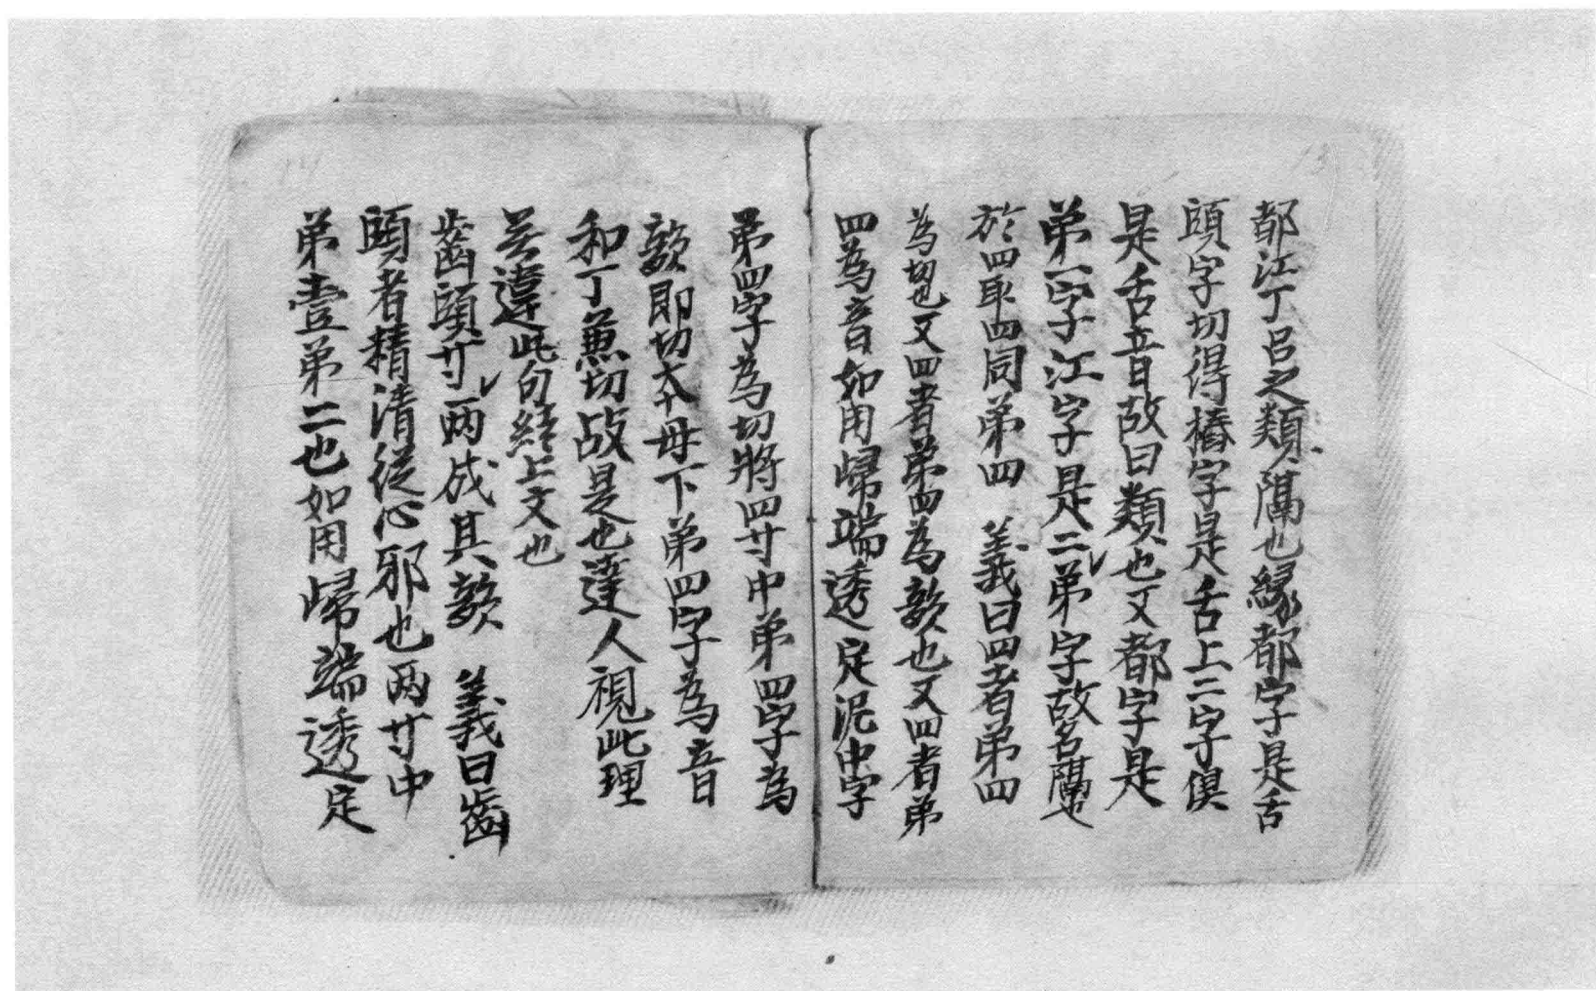 都江丁吕之類隔也縁都字是舌
頭字切得樁字是舌上二字俱
是舌音故曰類也又都字是
弟一字江字是二弟字故名隔也
於四取四同弟四 義曰四者弟四
為切也又四者弟四為韵也又四者弟
四為音如用歸端透定泥中字
弟四字為切將四廿中弟四字為
韵即切本母下弟四字為音
和丁兼切故是也達人視此理
無違此句結上文也
齒頭廿兩成其韵 義曰齒
頭者精清從心邪也兩廿中
弟壹弟二也如用歸端透定
13
14